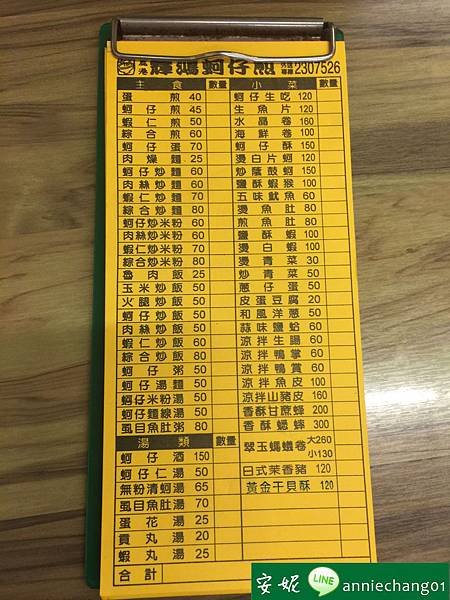 輝鴻蚵仔煎 2307526
主食 數量
蛋煎 40
蚵仔煎 45
蝦仁煎 50
綜合煎 60
蚵仔蛋 70
肉燥麵 25
蚵仔炒麵 60
肉絲炒麵 60
蝦仁炒麵 70
綜合炒麵 80
蚵仔炒米粉 60
肉絲炒米粉 60
蝦仁炒米粉 70
綜合炒米粉 80
魯肉飯 25
玉米炒飯 50
火腿炒飯 50
蚵仔炒飯 50
肉絲炒飯 50
蝦仁炒飯 60
綜合炒飯 80
蚵仔粥 50
蚵仔湯麵 50
蚵仔米粉湯 50
蚵仔麵線湯 50
虱目魚肚粥 80
湯類 數量
蚵仔酒 150
蚵仔仁湯 50
無粉清蚵湯 65
虱目魚肚湯 70
蛋花湯 25
貢丸湯 20
蝦丸湯 25
合計
小菜 數量
蚵仔生吃 120
生魚片 120
水晶卷 160
海鮮卷 100
蚵仔酥 150
燙白片蚵 120
炒蔭鼓蚵 150
鹽酥蝦猴 100
五味魷魚 60
燙魚肚 80
煎魚肚 80
鹽酥蝦 100
燙白蝦 100
燙青菜 30
炒青菜 50
蔥仔蛋 50
皮蛋豆腐 20
和風洋蔥 50
蒜味鹽蛤 60
涼拌生腸 60
涼拌鴨掌 60
涼拌鴨賞 60
涼拌魚皮 100
涼拌山豬皮 160
香酥甘蔗蜂 200
香酥蟋蟀 300
翠玉螞蟻卷 大260 小130
日式茉香豬 120
黃金干貝酥 120
安妮 LINE anniechang01